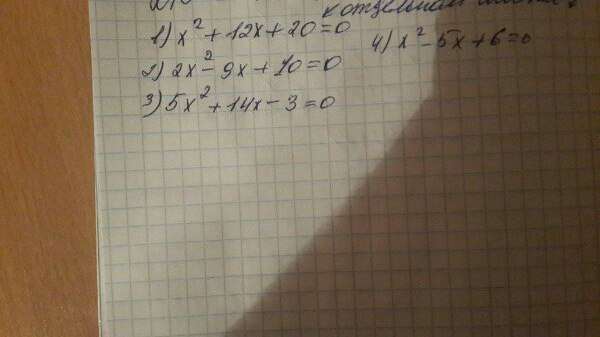 к отдельном
1) x² + 12x + 20 = 0
2) 2x² - 9x + 10 = 0
3) 5x² + 14x - 3 = 0
4) x² - 5x + 6 = 0